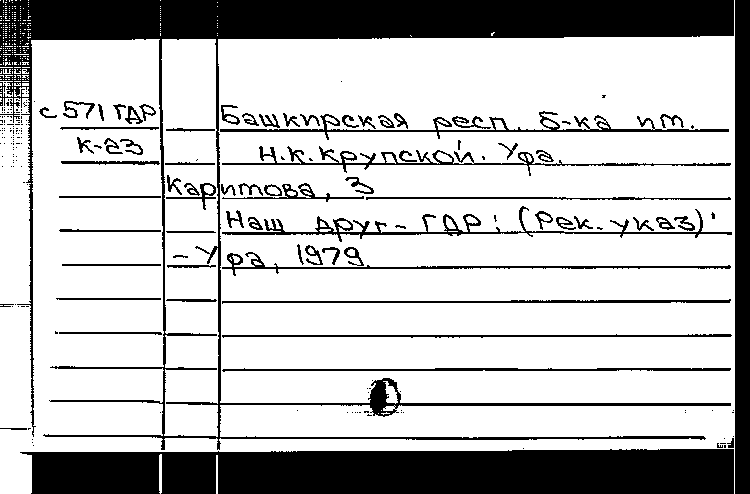 с571ГДР Башкирская респ. б-ка им.
К-23 Н.К.Крупской. Уфа.
Каримова, З
Наш друг - ГДР: (Рек. указ)
- Уфа, 1979.